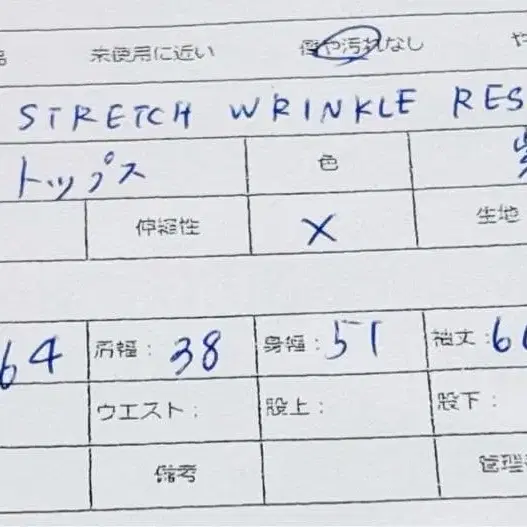 未使用に近い 傷や汚れなし や
STRETCH WRINKLE RES
トップス 色
伸縮性 × 生地
64 肩幅: 38 身幅: 51 袖丈: 6
ウエスト: 股上: 股下:
備考 管理